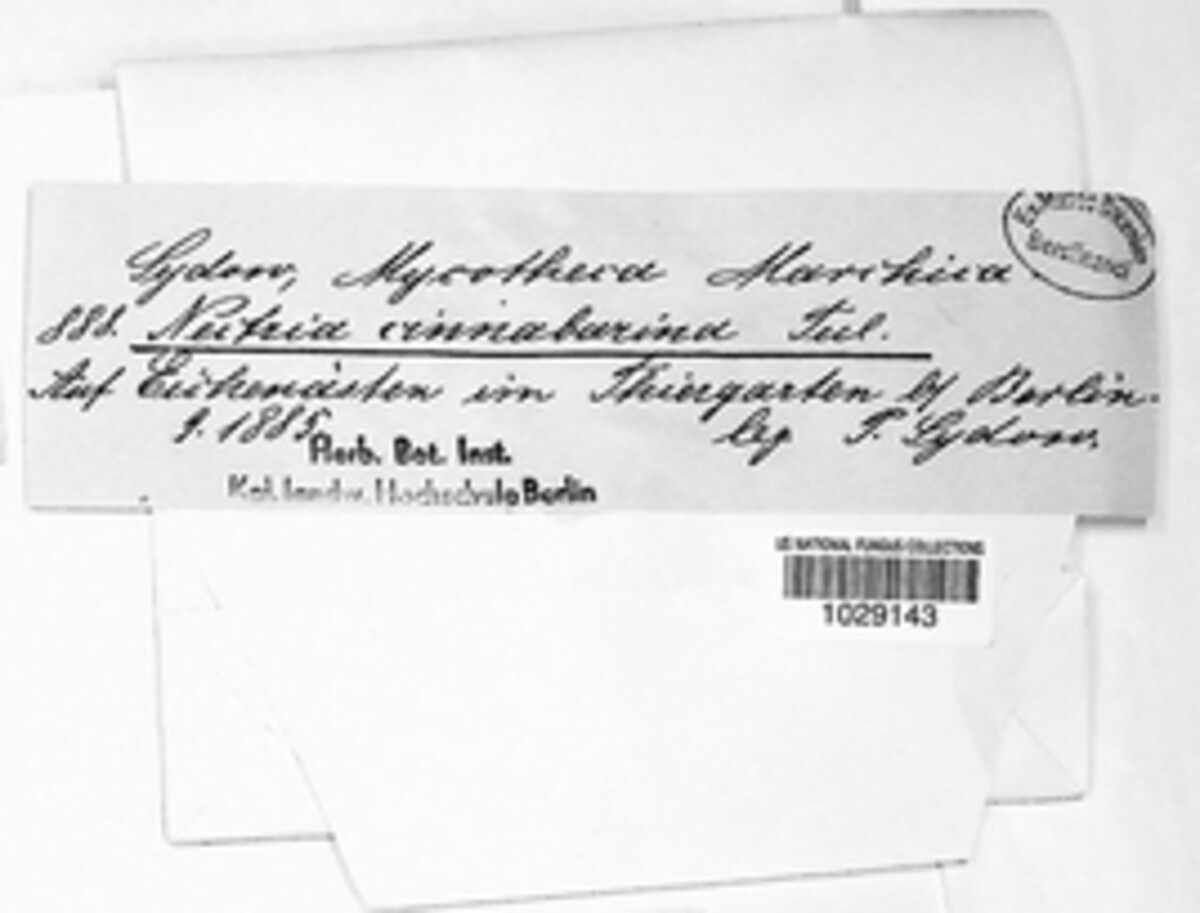 Sydow, Mycotheca Marchica
888. Nectria cinnabarina Tul.
Auf Eichenästen im Thiergarten b/ Berlin.
9. 1885. leg P. Sydow.
Herb. Bot. Inst.
Kgl. landw. Hochschule Berlin
US NATIONAL FUNGUS COLLECTIONS
1029143